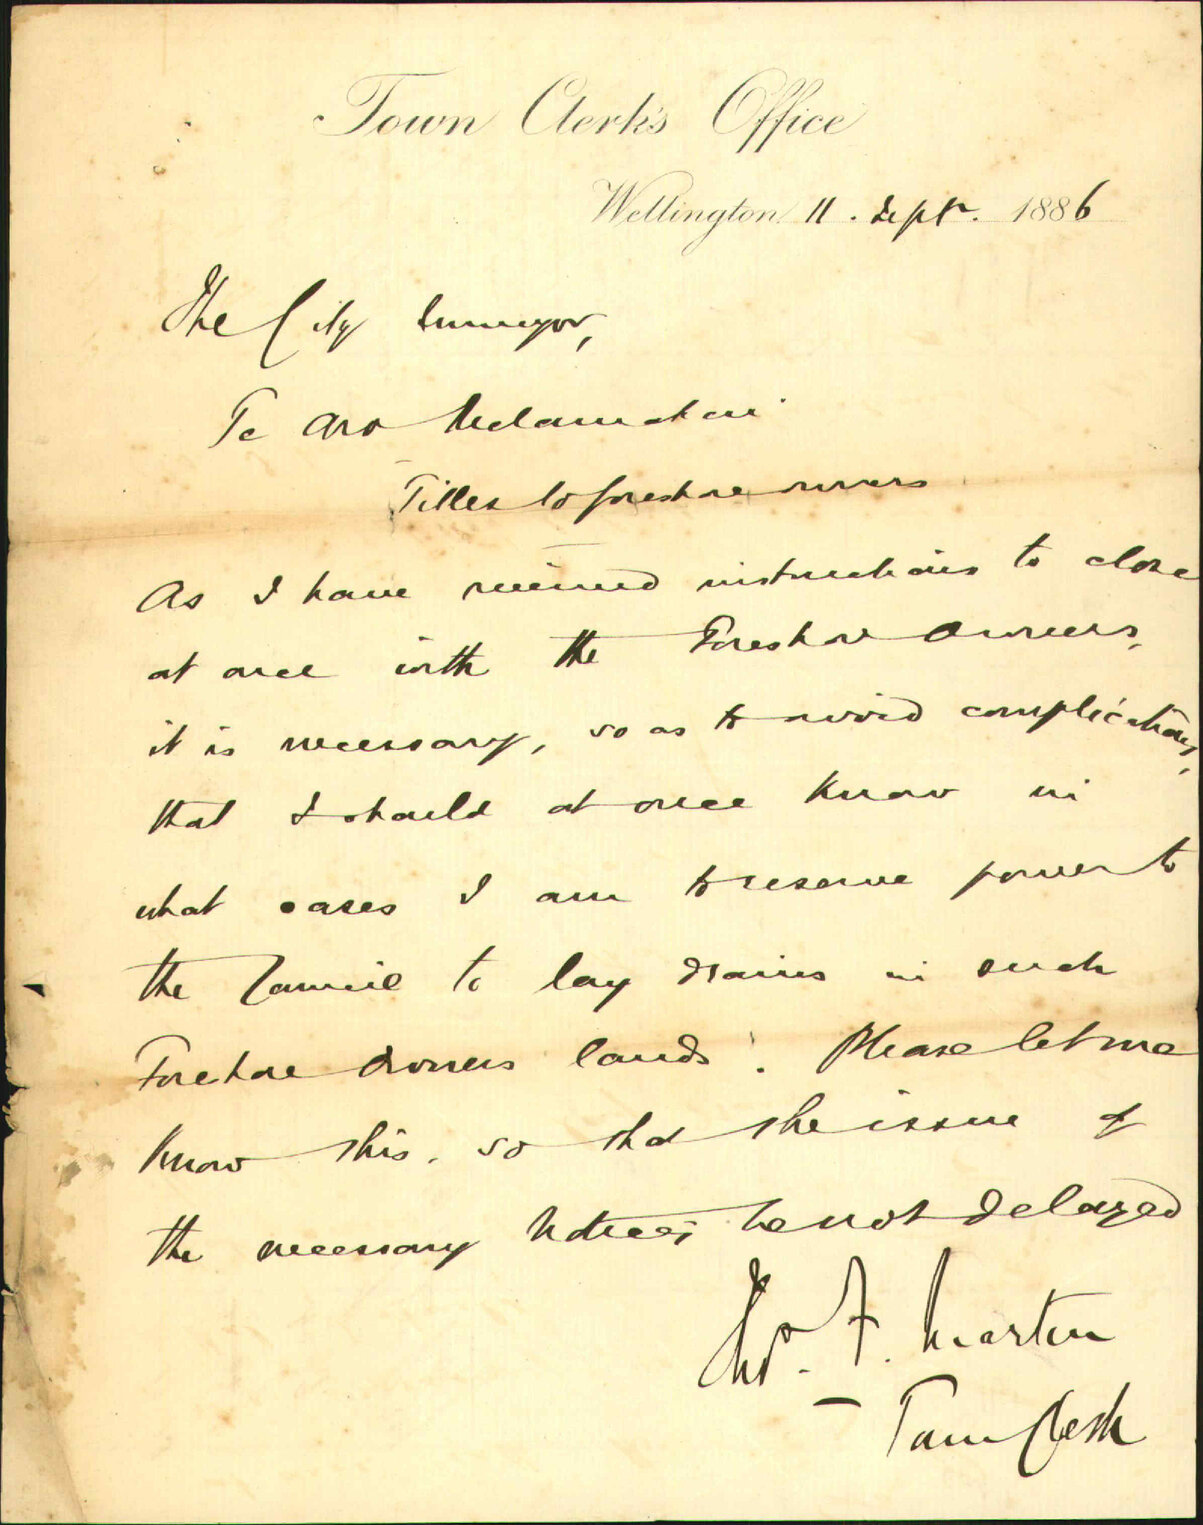 Town Clerk's Office
Wellington 11. Septr. 1886
The City Surveyor,
Te Aro Reclamation
Titles to foreshore owners
As I have received instructions to close
at once with the Foreshore Owners,
it is necessary, so as to avoid complications,
that I should at once know in
what cases I am to reserve power to
the Council to lay drains in such
Foreshore Owners lands. Please let me
know this, so that the issue of
the necessary Notices be not delayed
Thos. F. Martin
Town Clerk